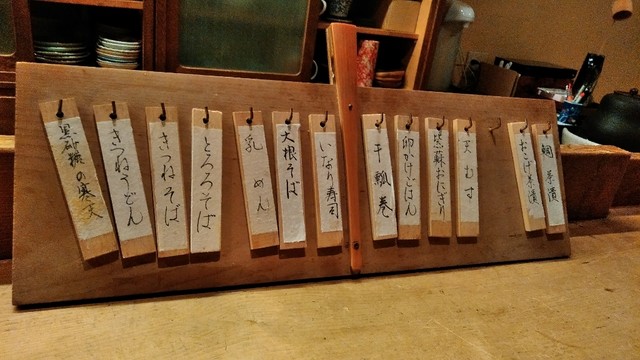 鯛茶漬
おこげ茶漬
天むす
紫蘇おにぎり
卵かけごはん
干瓢巻
いなり寿司
大根そば
乳めん
とろろそば
きつねそば
きつねうどん
黒砂糖の寒天